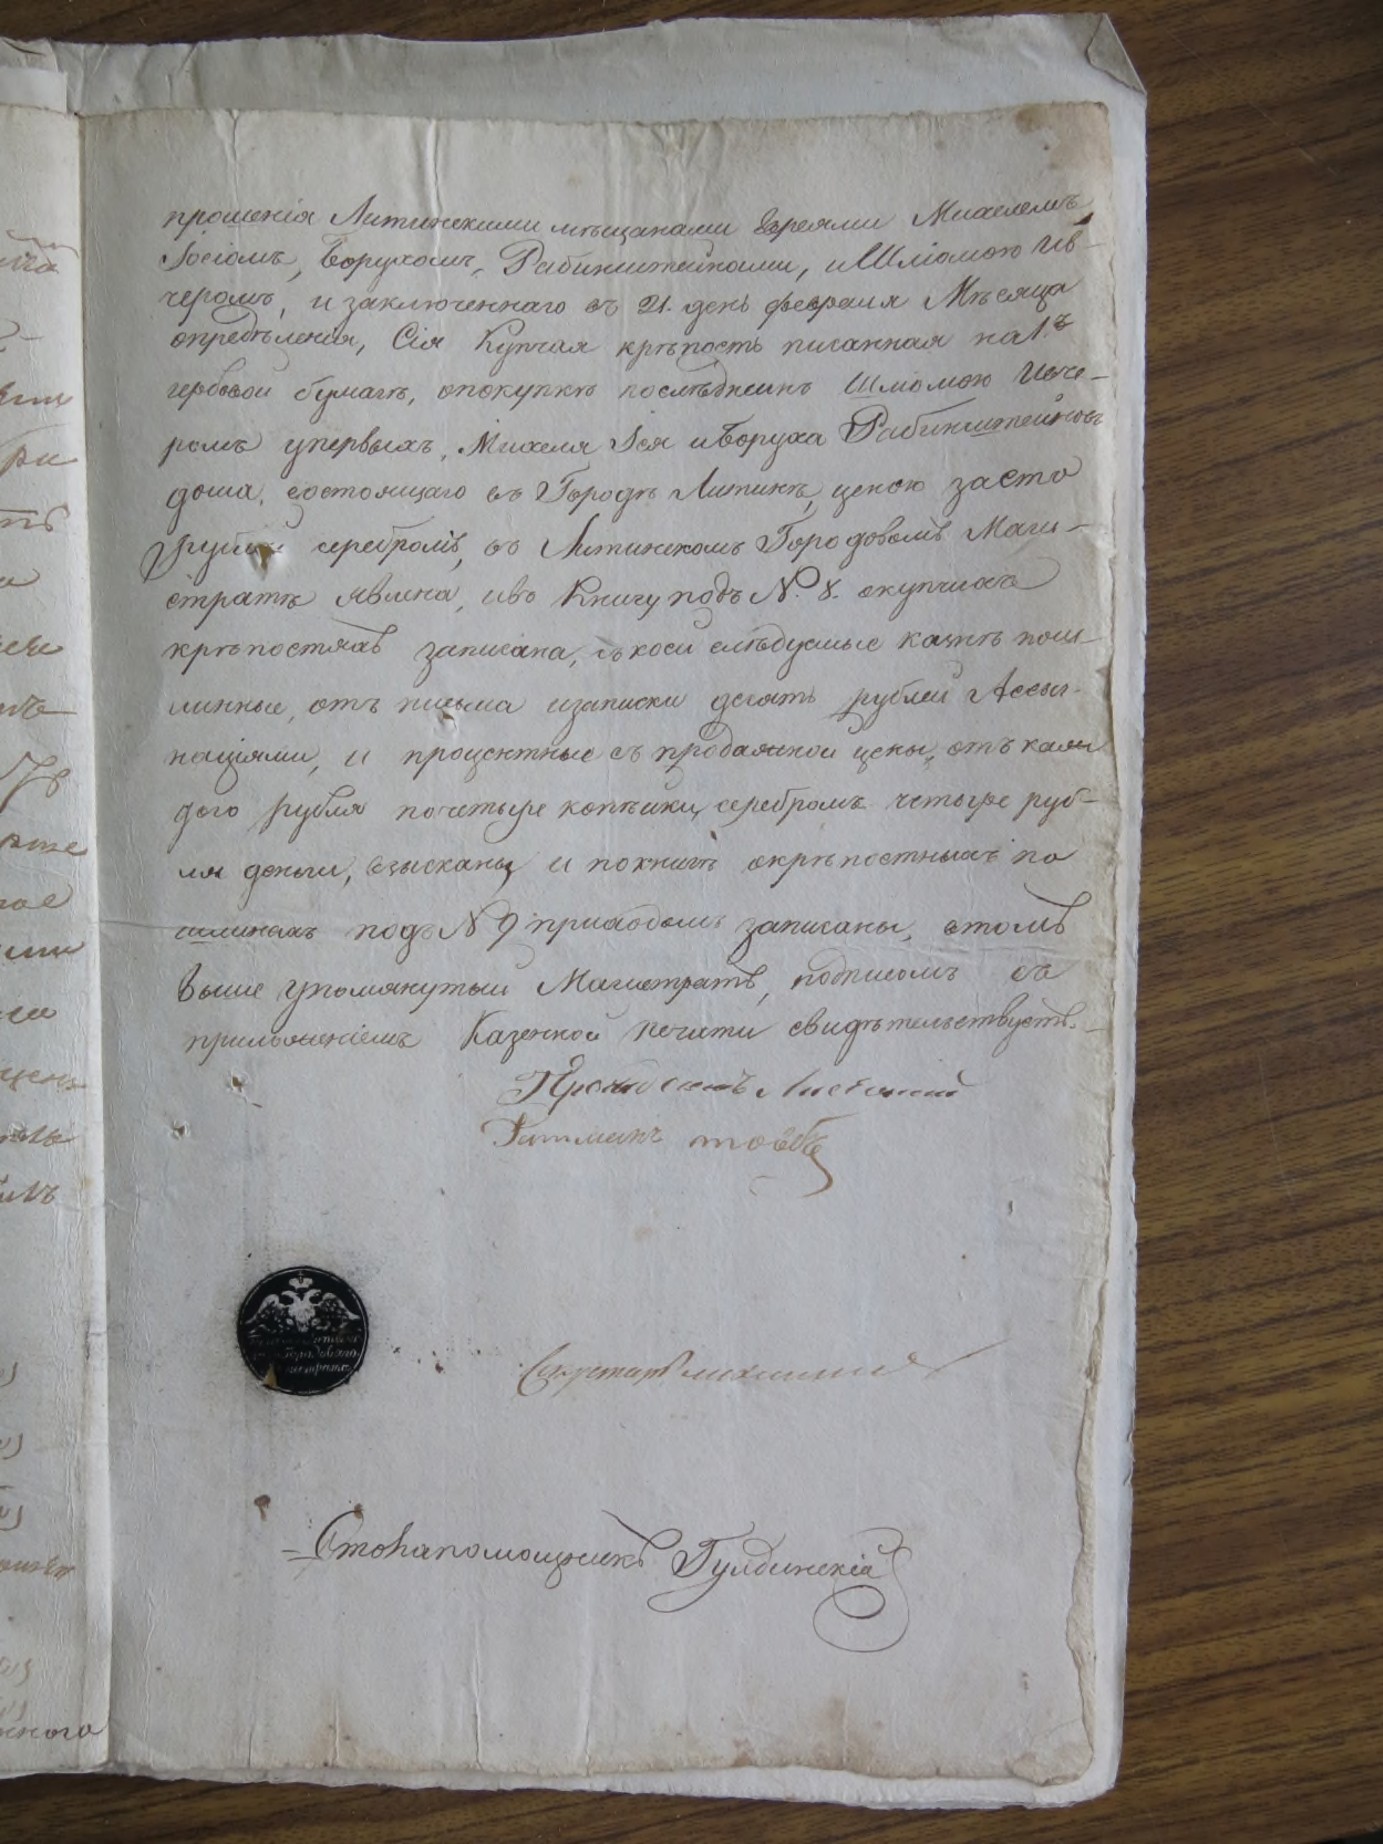 прошенія Литинскими мѣщанами Евреями Михелемъ
Іосіомъ, Борухомъ, Рабинштейнами, и Шліомою Ив-
черомъ, и заключеннаго въ 21. день февраля Мѣсяца
опредѣленія, Сія Купчая крѣпость писанная на 1.ъ
гербовой бумагѣ, опокупкѣ послѣднимъ Шліомою Ивче-
ромъ упервыхъ, Михеля Іося и Боруха Рабинштейновъ
дома, состоящаго въ Городѣ Литинѣ, ценою засто
рублей серебромъ, въ Литинскомъ Городовомъ Маги-
стратѣ явлена, ивъ Книгу подъ N. 8. окупчихъ
крѣпостяхъ записана, съ коей слѣдуемые казнѣ пош-
линные, отъ письма изаписки десять рублей Ассиг-
націями, и процентные съ продажной цены, отъ каж
дого рубля почетыре копѣйки, серебромъ четыре руб-
ля деньги, взысканы, и покнигѣ окрѣпостныхъ по
шлинахъ подъ N 9 приходомъ записаны, втомъ
выше упомянутый Магистратъ, подписомъ съ
приложеніемъ Казенной печати свидѣтельствуетъ.-
Ратманъ
Городоваго
Секретарь
Столапомощникъ Гулдинскій